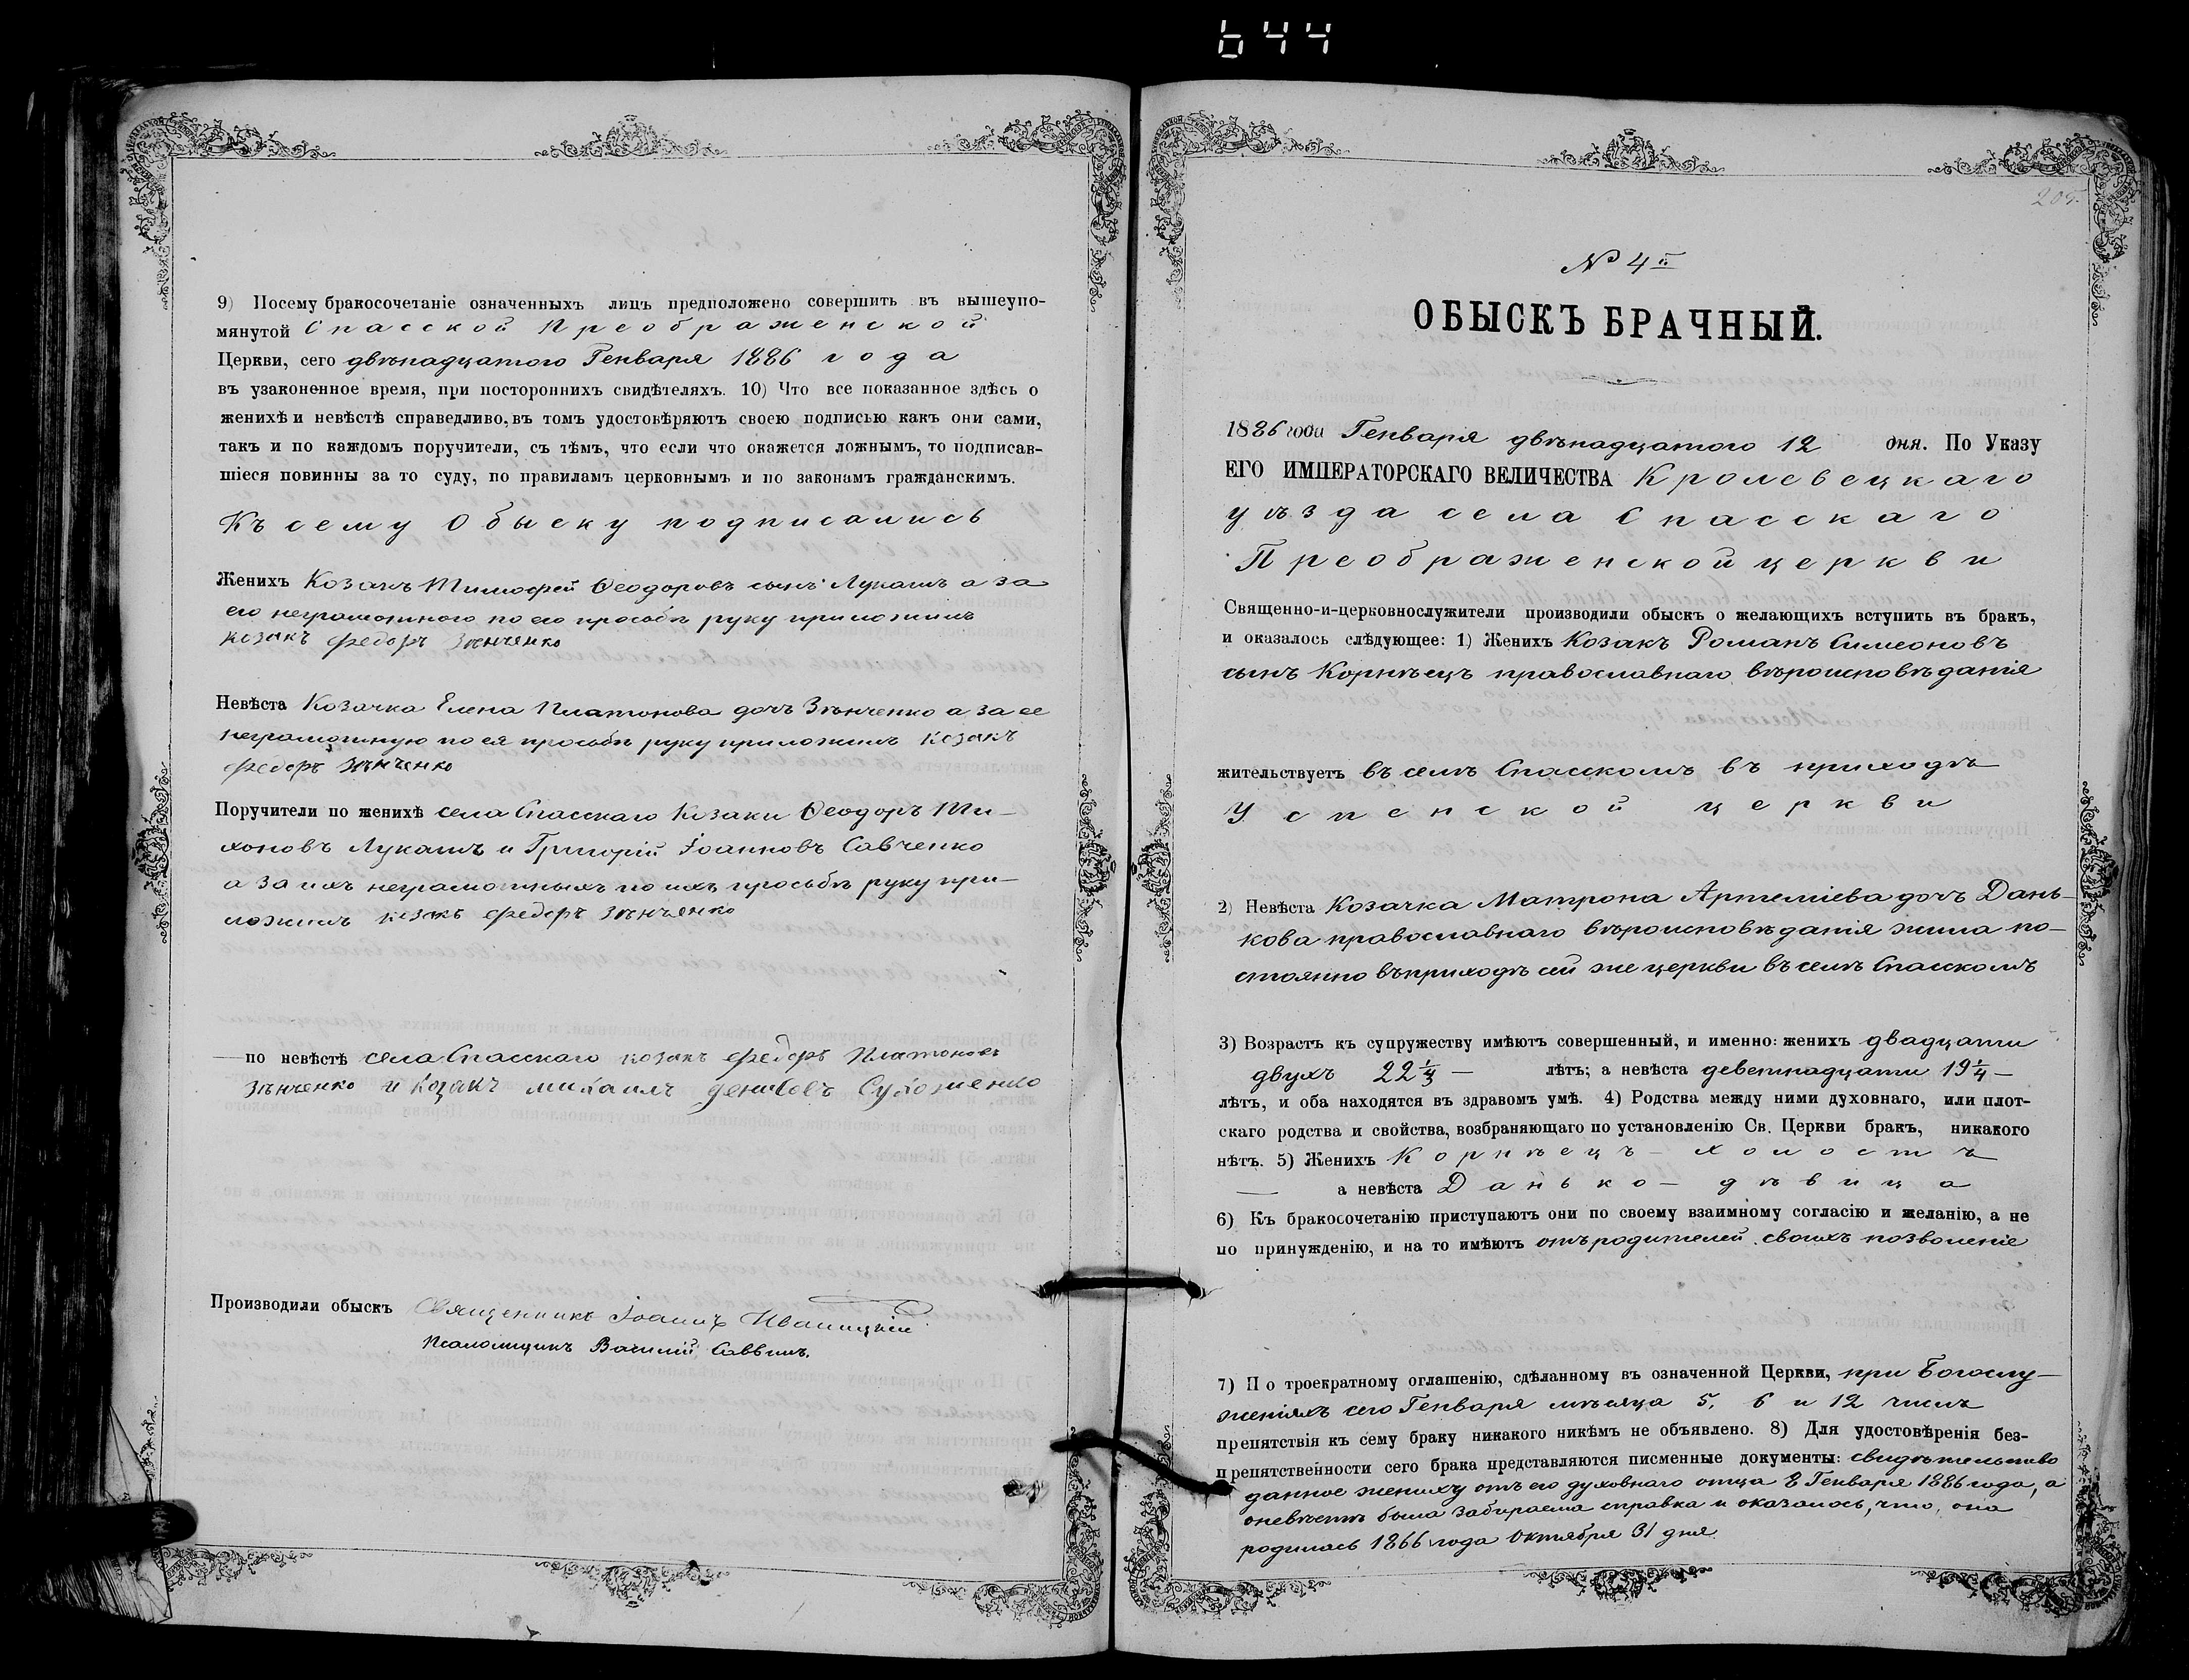 644
9) Посему бракосочетаніе означенныхъ лицъ предположено совершить въ вышеупо-
мянутой Спасской Преображенской
Церкви, сего двѣнадцатого Генваря 1886 года
въ узаконенное время, при постороннихъ свидѣтеляхъ. 10) Что все показанное здѣсь о
женихѣ и невѣстѣ справедливо, въ томъ удостовѣряютъ своею подписью какъ они сами,
такъ и по каждомъ поручители, съ тѣмъ, что если что окажется ложнымъ, то подписав-
шіеся повинны за то суду, по правиламъ церковнымъ и по законамъ гражданскимъ.
Къ сему Обыску подписались
Женихъ Козакъ Тимофей Ѳеодоровъ сынъ Лукашъ а за
его неграмотного по его прозьбѣ руку приложилъ
козакъ Федоръ Зѣнченко
Невѣста Козачка Елена Платонова дочь Зѣнченко а за ее
неграмотную по ея прозьбѣ руку приложилъ козакъ
Федоръ Зѣнченко
Поручители по женихѣ села Спасскаго Козаки Ѳеодоръ Ти-
хоновъ Лукашъ и Григорій Іоанновъ Савченко
а за ихъ неграмотныхъ по ихъ прозьбѣ руку при-
ложилъ козакъ Федоръ Зѣнченко
по невѣстѣ села Спасскаго козакъ Федоръ Платоновъ
Зѣнченко и козакъ михаилъ денисовъ
Производили обыскъ Священникъ Іоаннъ Иваницкій
Псаломщикъ Василій Саввинъ.
205.
№ 4й
ОБЫСКЪ БРАЧНЫЙ.
1886 года Генваря двѣнадцатого 12 дня. По Указу
ЕГО ИМПЕРАТОРСКАГО ВЕЛИЧЕСТВА Кролевецкаго
уѣзда села Спасскаго
Преображенской церкви
Священно-и-церковнослужители производили обыскъ о желающихъ вступить въ бракъ,
и оказалось слѣдующее: 1) Женихъ Козакъ Романъ Симеоновъ
сынъ Корнѣецъ православнаго вѣроисповѣданія
жительствуетъ въ селѣ Спасскомъ въ приходѣ
Успенской церкви
2) Невѣста Козачка Матрона Артеміева дочь Дань-
кова православнаго вѣроисповѣданія жила по-
стоянно въ приходѣ сей же церкви въ селѣ Спасскомъ
3) Возрастъ къ супружеству имѣютъ совершенный, и именно: женихъ двадцати
двухъ 22 1/4 — лѣтъ; а невѣста деветнадцати 19 1/4 —
лѣтъ, и оба находятся въ здравомъ умѣ. 4) Родства между ними духовнаго, или плот-
скаго родства и свойства, возбраняющаго по установленію Св. Церкви бракъ, никакого
нѣтъ. 5) Женихъ Корнѣецъ — холостъ
— а невѣста Данько — дѣвица
6) Къ бракосочетанію приступаютъ они по своему взаимному согласію и желанію, а не
по принужденію, и на то имѣютъ отъ родителей своихъ позволеніе
7) По троекратному оглашенію, сдѣланному въ означенной Церкви, при Богослу-
женіяхъ сего Генваря мѣсяца 5, 6 и 12 числъ
препятствія къ сему браку никакого никѣмъ не объявлено. 8) Для удостовѣренія без-
препятственности сего брака представляются писменные документы: свидѣтельство
данное жениху отъ его духовнаго отца 8 Генваря 1886 года, а
о невѣстѣ была забираема справка и оказалось, что она
родилась 1866 года Октября 31 дня